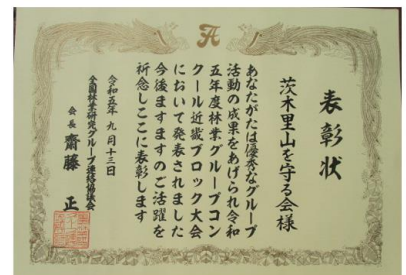 表彰状
茨木里山を守る会様
あなたがたは優秀なグループ
活動の成果をあげられ令和
五年度林業グループコン
クール近畿ブロック大会
において発表されました
今後ますますのご活躍を
祈念しここに表彰します
令和五年九月十三日
全国林業研究グループ連絡協議会
会長 齋藤 正